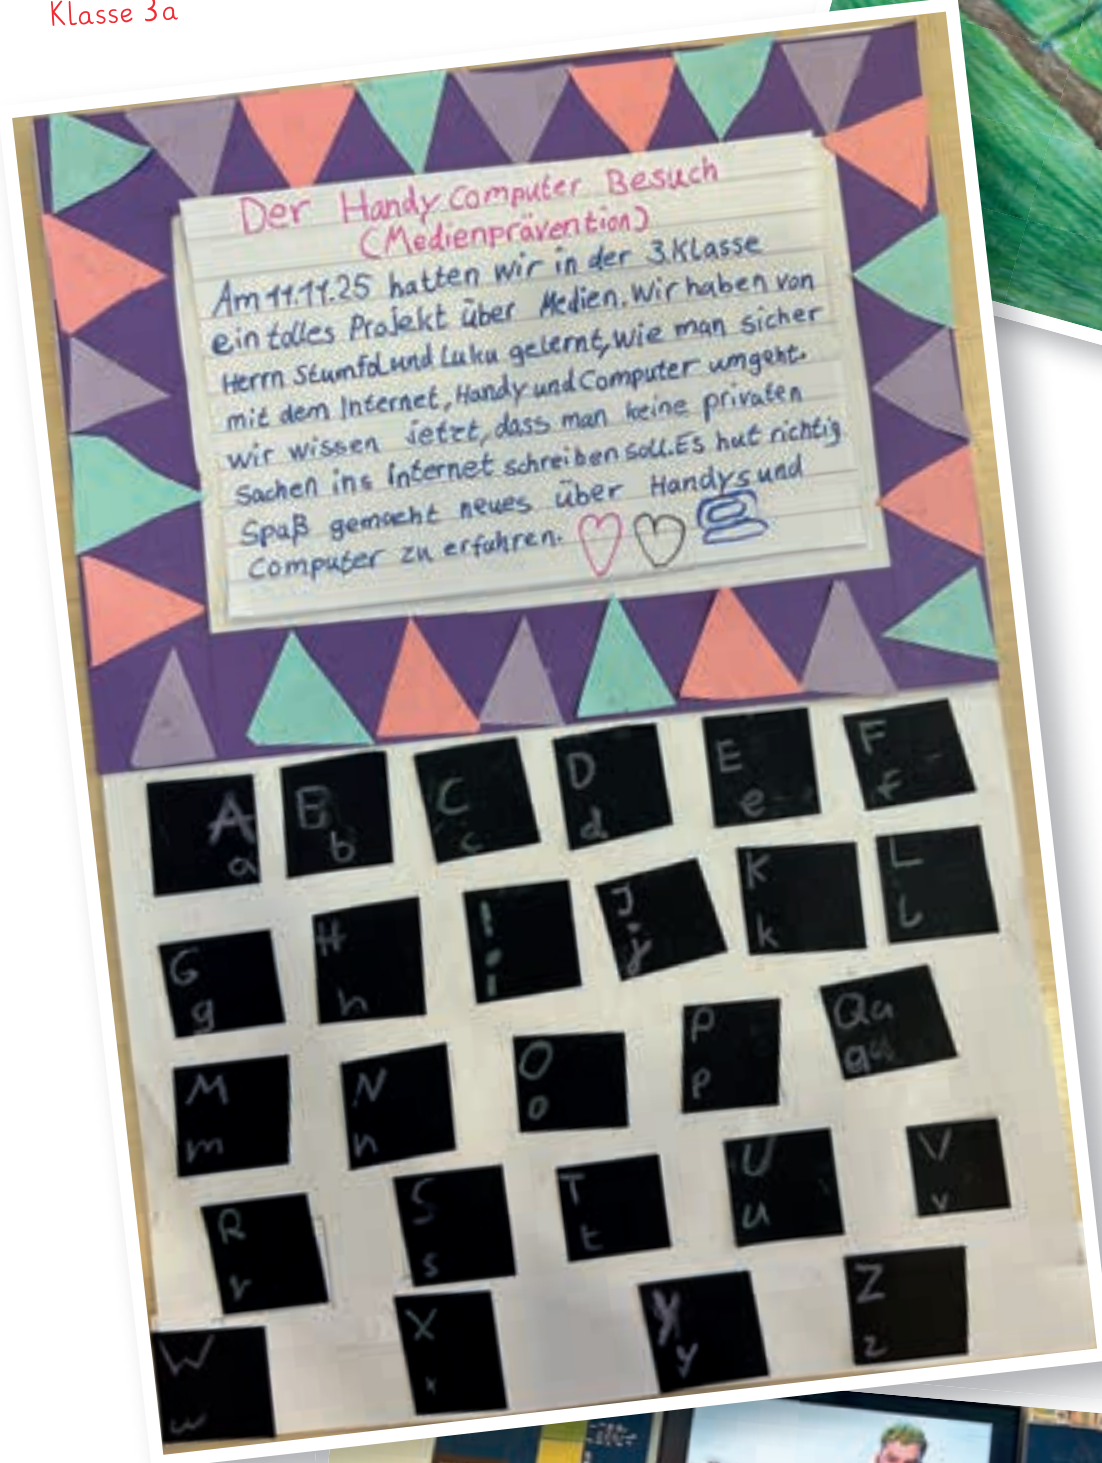 Klasse 3a
Der Handy Computer Besuch
(Medienprävention)
Am 11.11.25 hatten wir in der 3.Klasse
ein tolles Projekt über Medien. Wir haben von
Herrn Stumfol und Luku gelernt, wie man sicher
mit dem Internet, Handy und Computer umgeht.
wir wissen jetzt, dass man keine privaten
Sachen ins Internet schreiben soll. Es hat richtig
Spaß gemacht neues über Handys und
Computer zu erfahren.
A B C D E F
a b c d e f
G H I J K L
g h i j k l
M N O P Qu
m n o p qu
R S T U V
r s t u v
W X Y Z
w x y z